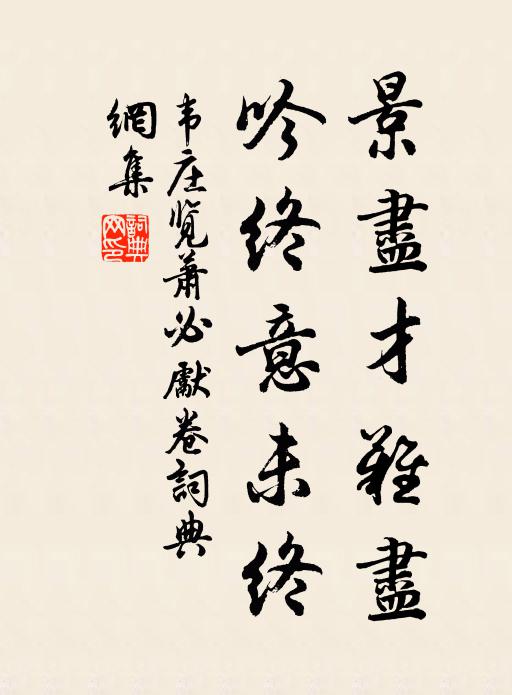 景盡才難盡
吟終意未終
韦庄览蕭必獻卷詞典
網集
詞典
网印